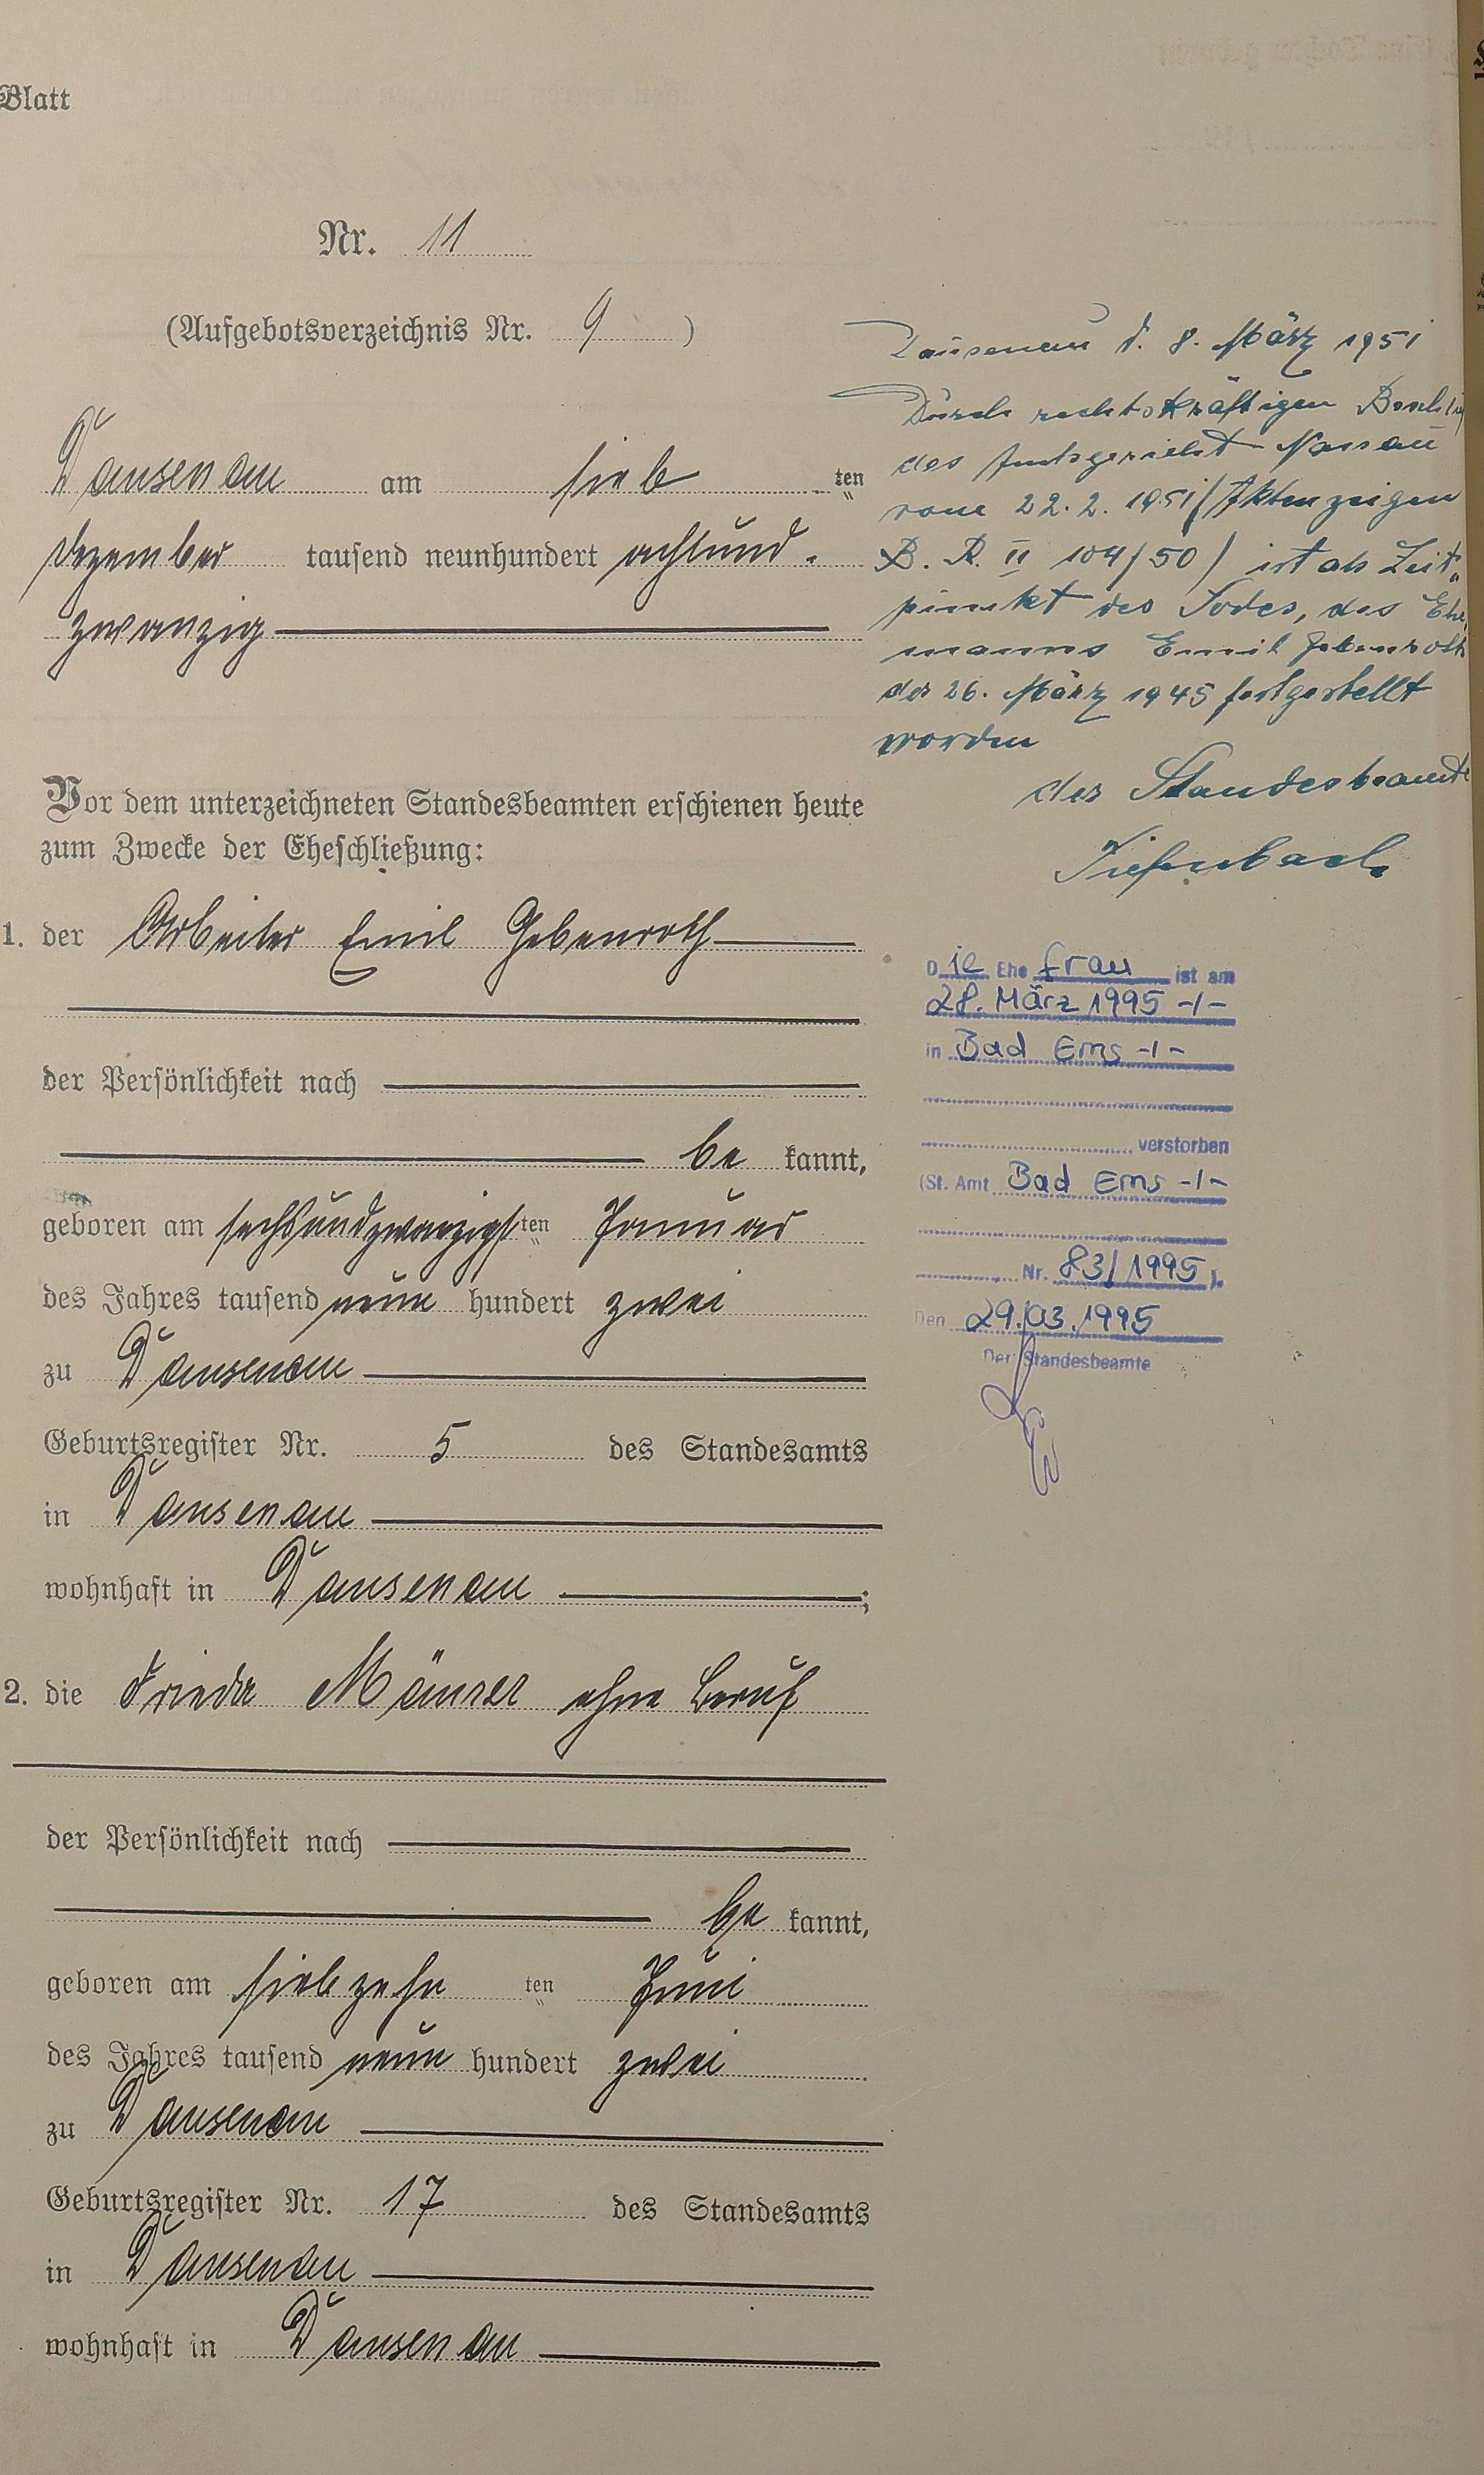 Blatt
Nr. 11
(Aufgebotsverzeichnis Nr. 9 )
Dausenau am sieb ten
Dezember tausend neunhundert achtund-
zwanzig
Vor dem unterzeichneten Standesbeamten erschienen heute
zum Zwecke der Eheschließung:
1. der Arbeiter Emil Gebenroth
der Persönlichkeit nach
be kannt,
geboren am sechsundzwanzigsten Januar
des Jahres tausend neun hundert zwei
zu Dausenau
Geburtsregister Nr. 5 des Standesamts
in Dausenau
wohnhaft in Dausenau ;
2. die Frieda Mäurer ohne Beruf
der Persönlichkeit nach
be kannt,
geboren am siebzehn ten Juni
des Jahres tausend neun hundert zwei
zu Dausenau
Geburtsregister Nr. 17 des Standesamts
in Dausenau
wohnhaft in Dausenau
Dausenau d. 8. März 1951
Durch rechtskräftigen Beschluß
des Amtsgericht Nassau
vom 22.2.1951 (Aktenzeigen
B. R. II 104/50) ist als Zeit-
punkt des Todes, des Ehe
manns Emil Gebenroth
der 26. März 1945 festgestellt
worden
der Standesbeamte
Tiefenbach
Die Ehefrau ist am
28. März 1995 -/-
in Bad Ems -/-
verstorben
(St. Amt Bad Ems -/-
Nr. 83/1995 ).
Den 29.03.1995
Der Standesbeamte